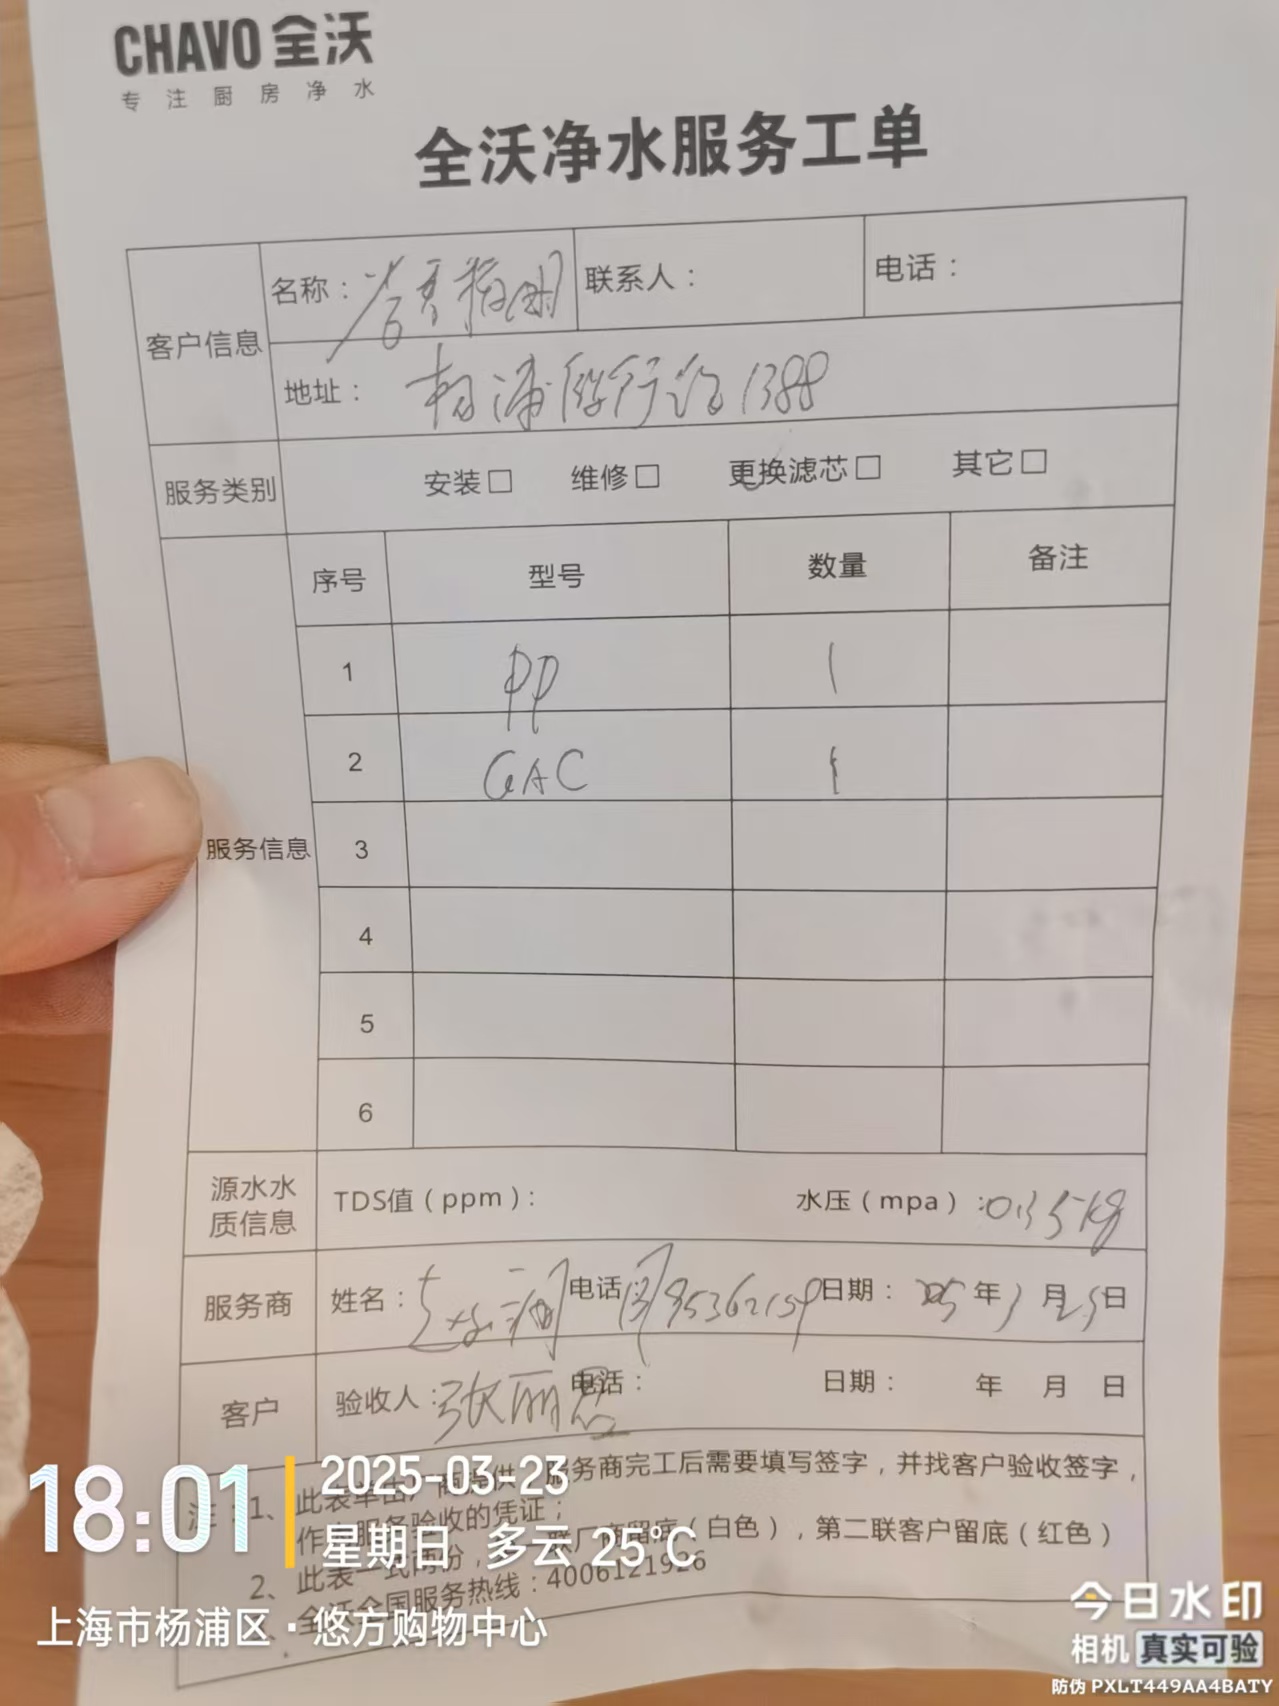 CHAVO 全沃
专注厨房净水
全沃净水服务工单
客户信息
名称：
联系人：
电话：
地址：杨浦殷行路1388
服务类别
安装□ 维修□ 更换滤芯□ 其它□
服务信息
序号 型号 数量 备注
1 PP 1
2 GAC 1
3
4
5
6
源水水质信息
TDS值（ppm）：
水压（mpa）：0.35kg
服务商
姓名：
电话
日期： 年 月 日
客户
验收人：张丽君
电话：
日期： 年 月 日
注：1、此表单由厂商提供，服务商完工后需要填写签字，并找客户验收签字，
作为服务验收的凭证；
2、此表一式两份，联厂商留底（白色），第二联客户留底（红色）
全沃全国服务热线：4006121926
18:01
2025-03-23
星期日 多云 25℃
上海市杨浦区·悠方购物中心
今日水印
相机 真实可验
防伪 PXLT449AA4BATY